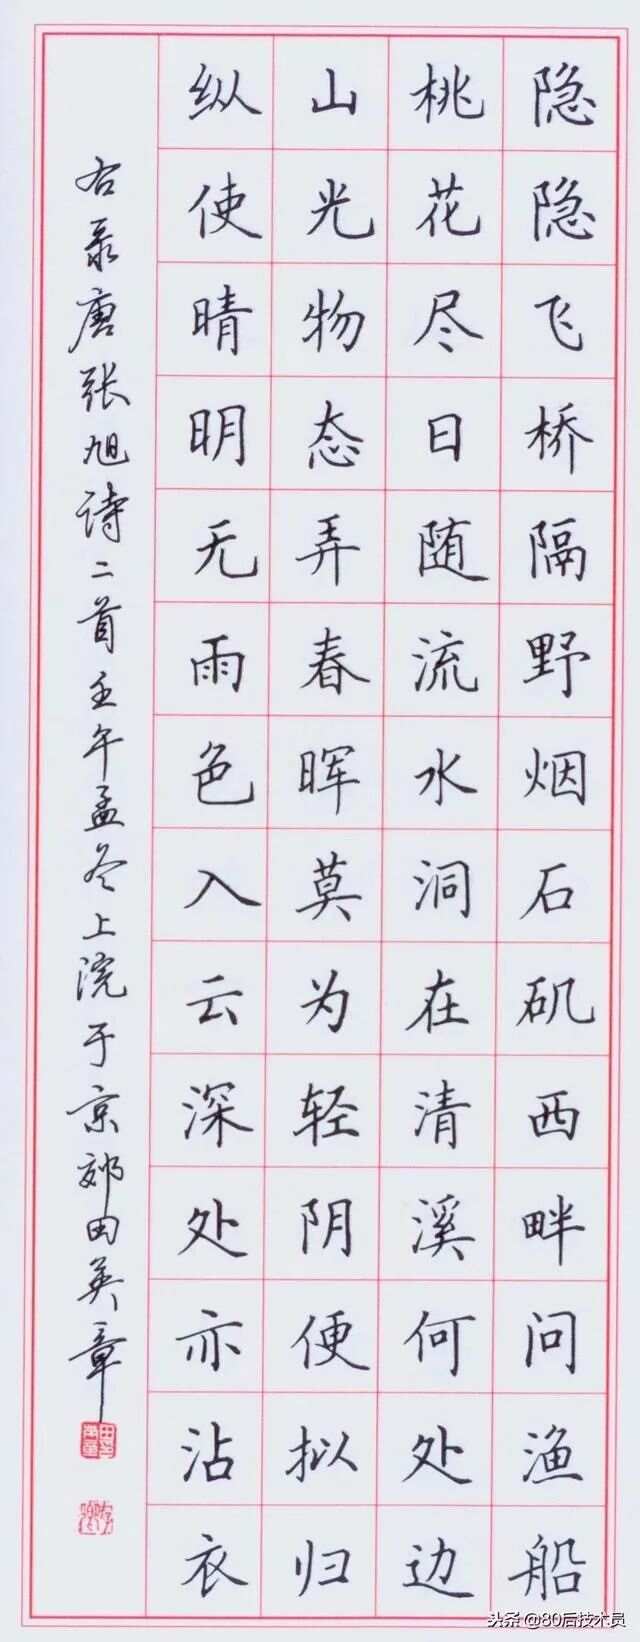 隐隐飞桥隔野烟石矶西畔问渔船
桃花尽日随流水洞在清溪何处边
山光物态弄春晖莫为轻阴便拟归
纵使晴明无雨色入云深处亦沾衣
右录唐张旭诗二首壬午孟冬上浣于京郊田英章
头条 @80后技术员